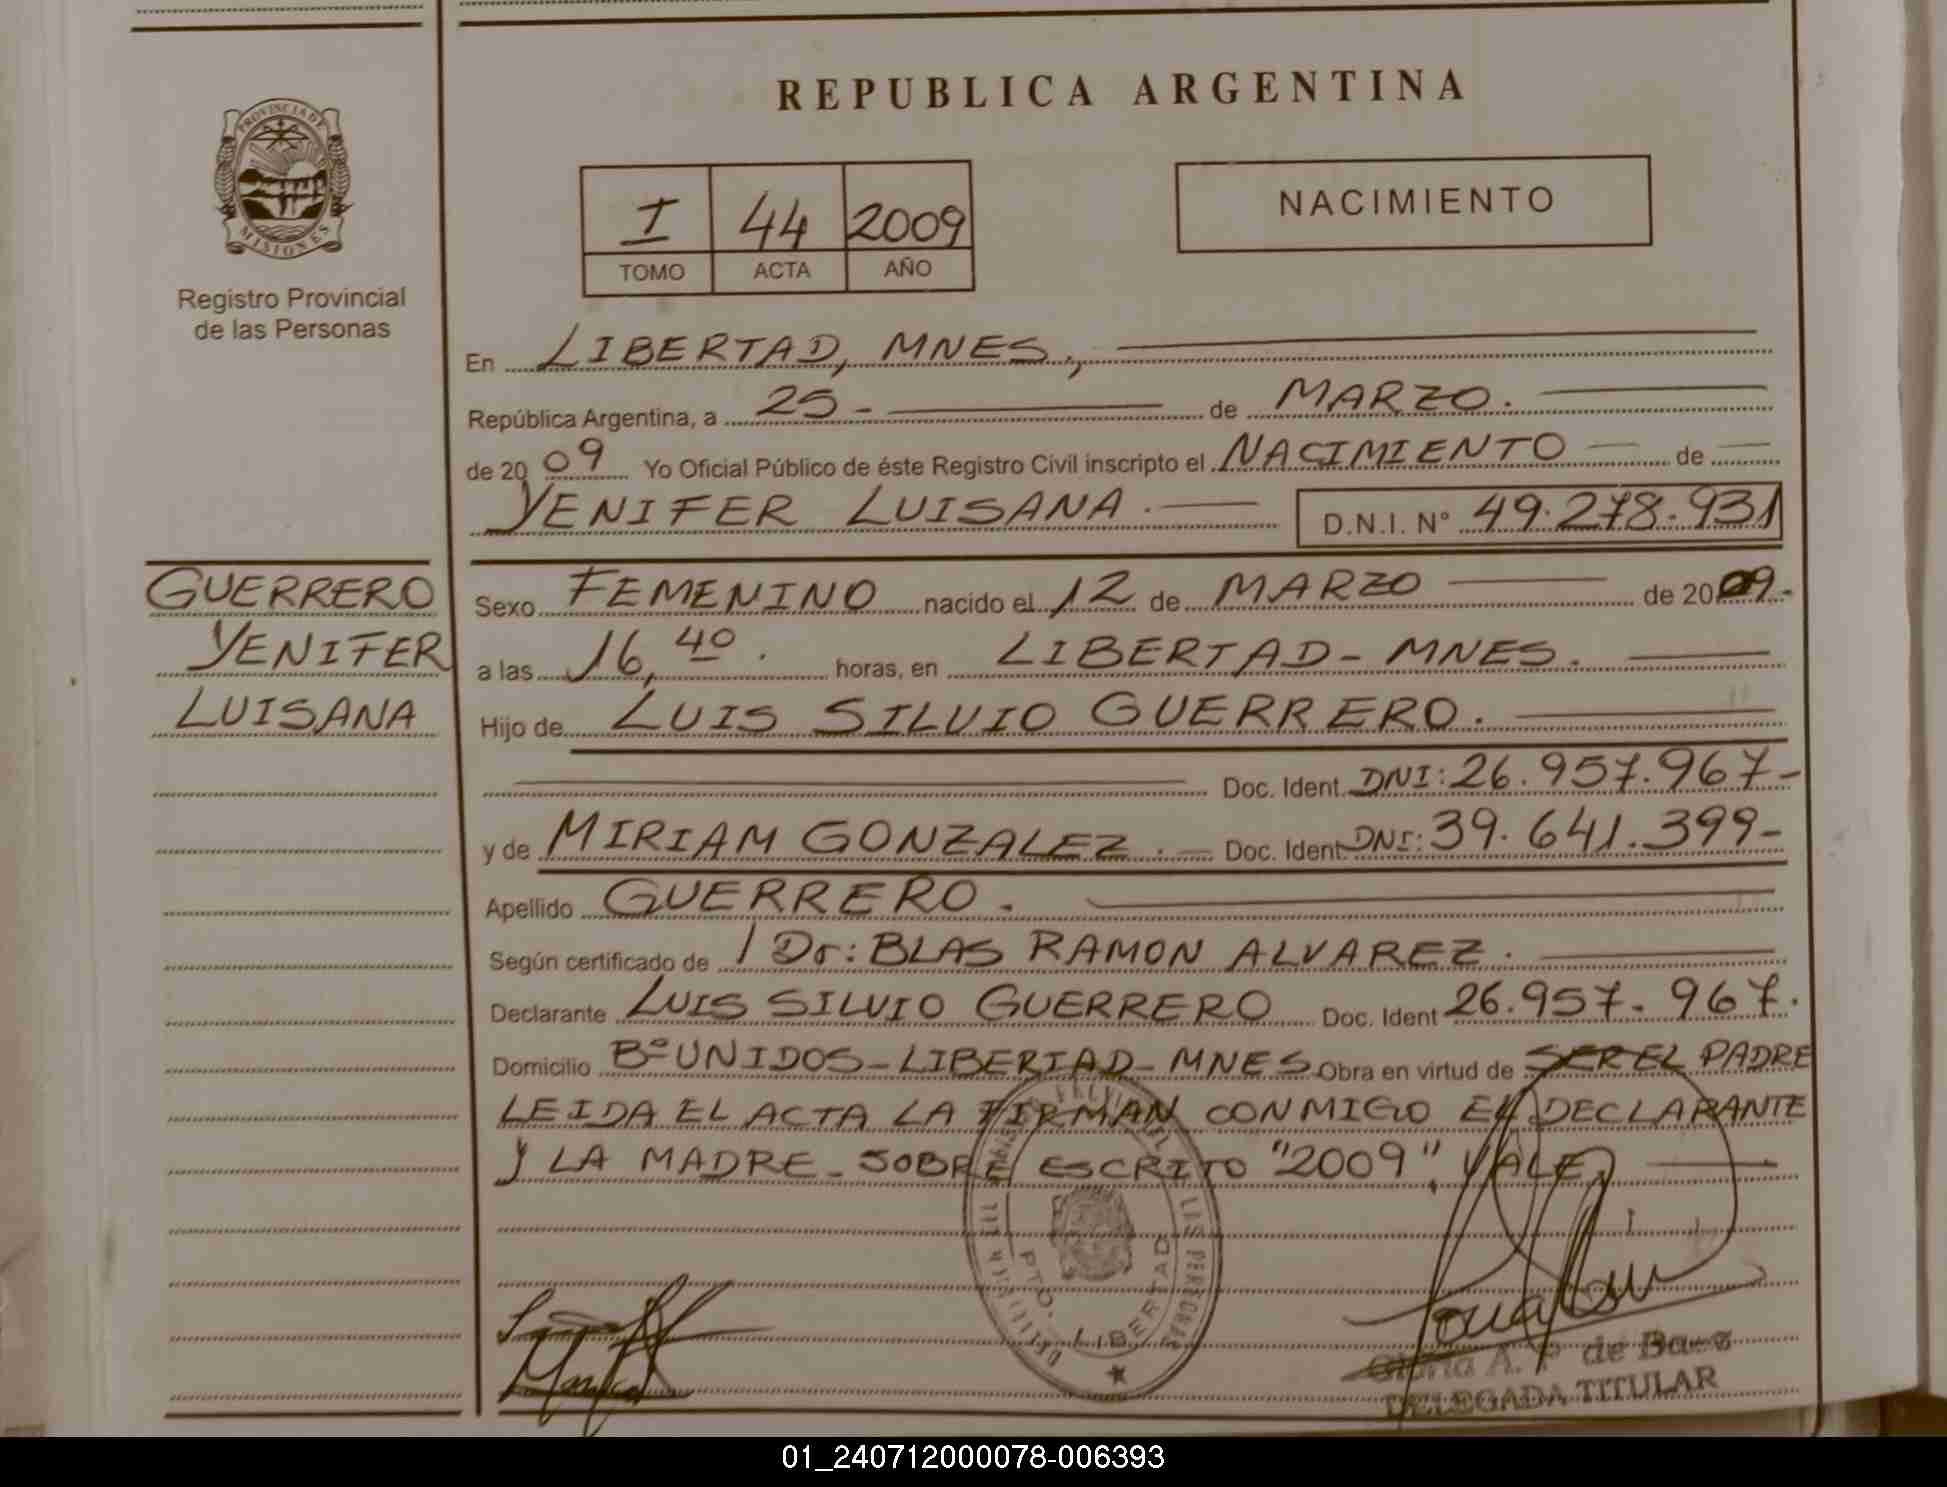 REPUBLICA ARGENTINA
PROVINCIA DE
MISIONES
Registro Provincial
de las Personas
I 44 2009
TOMO ACTA AÑO
NACIMIENTO
En LIBERTAD, MNES.,
República Argentina, a 25- de MARZO.
de 2009 Yo Oficial Público de éste Registro Civil inscripto el NACIMIENTO de
YENIFER LUISANA. D.N.I. Nº 49.278.931
GUERRERO
YENIFER
LUISANA
Sexo FEMENINO nacido el 12 de MARZO de 2009.-
a las 16,40. horas, en LIBERTAD-MNES.
Hijo de LUIS SILVIO GUERRERO.
Doc. Ident. DNI: 26.957.967-
y de MIRIAM GONZALEZ. Doc. Ident DNI: 39.641.399-
Apellido GUERRERO.
Según certificado de Dr: BLAS RAMON ALVAREZ.
Declarante LUIS SILVIO GUERRERO Doc. Ident 26.957.967.
Domicilio Bº UNIDOS-LIBERTAD-MNES Obra en virtud de SER EL PADRE
LEIDA EL ACTA LA FIRMAN CONMIGO EL DECLARANTE
Y LA MADRE. SOBRE ESCRITO "2009", VALE.
PTO. LIBERTAD
A. P de Baez
DELEGADA TITULAR
01_240712000078-006393